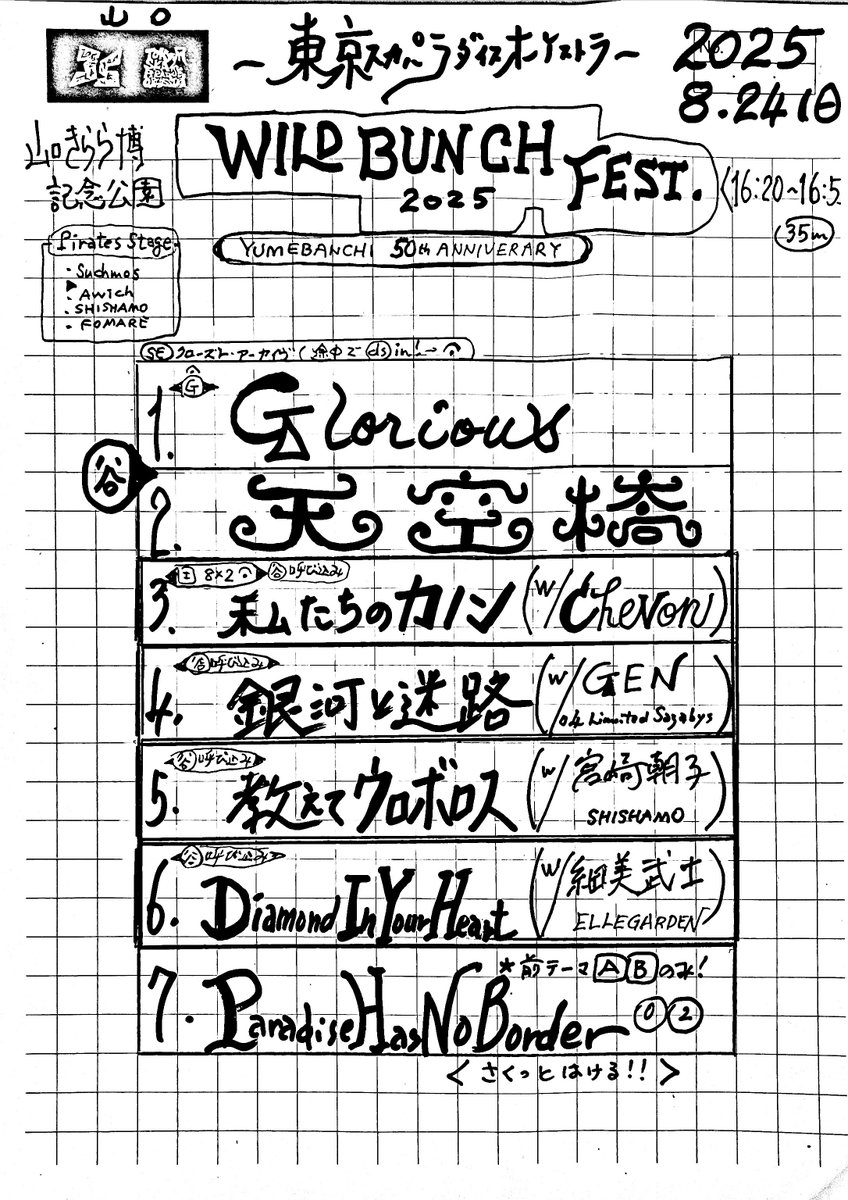 山口
～東京スカパラダイスオーケストラ～
2025
8.24(日)
山口きらら博
記念公園
WILD BUNCH
FEST.
2025
(16:20~16:5
35m
YUMEBANCHI 50th ANNIVERARY
Pirates Stage
・Suchmos
・Awich
・SHISHAMO
・FOMARE
SE クローズト・アーカイヴ(途中で ds in!→
G
1. Glorious
谷
2. 天空橋
8×2 谷呼び込み
3. 私たちのカノン (w/Chevon)
谷呼び込み
4. 銀河と迷路 (w/GEN
04 Limited Sazabys)
谷呼び込み
5. 教えてウロボロス (w/宮崎朝子
SHISHAMO)
谷呼び込み
6. Diamond In Your Heart (w/細美武士
ELLEGARDEN)
*前テーマ A B のみ!
7. Paradise Has No Border 0 2
<さくっとはける!!>